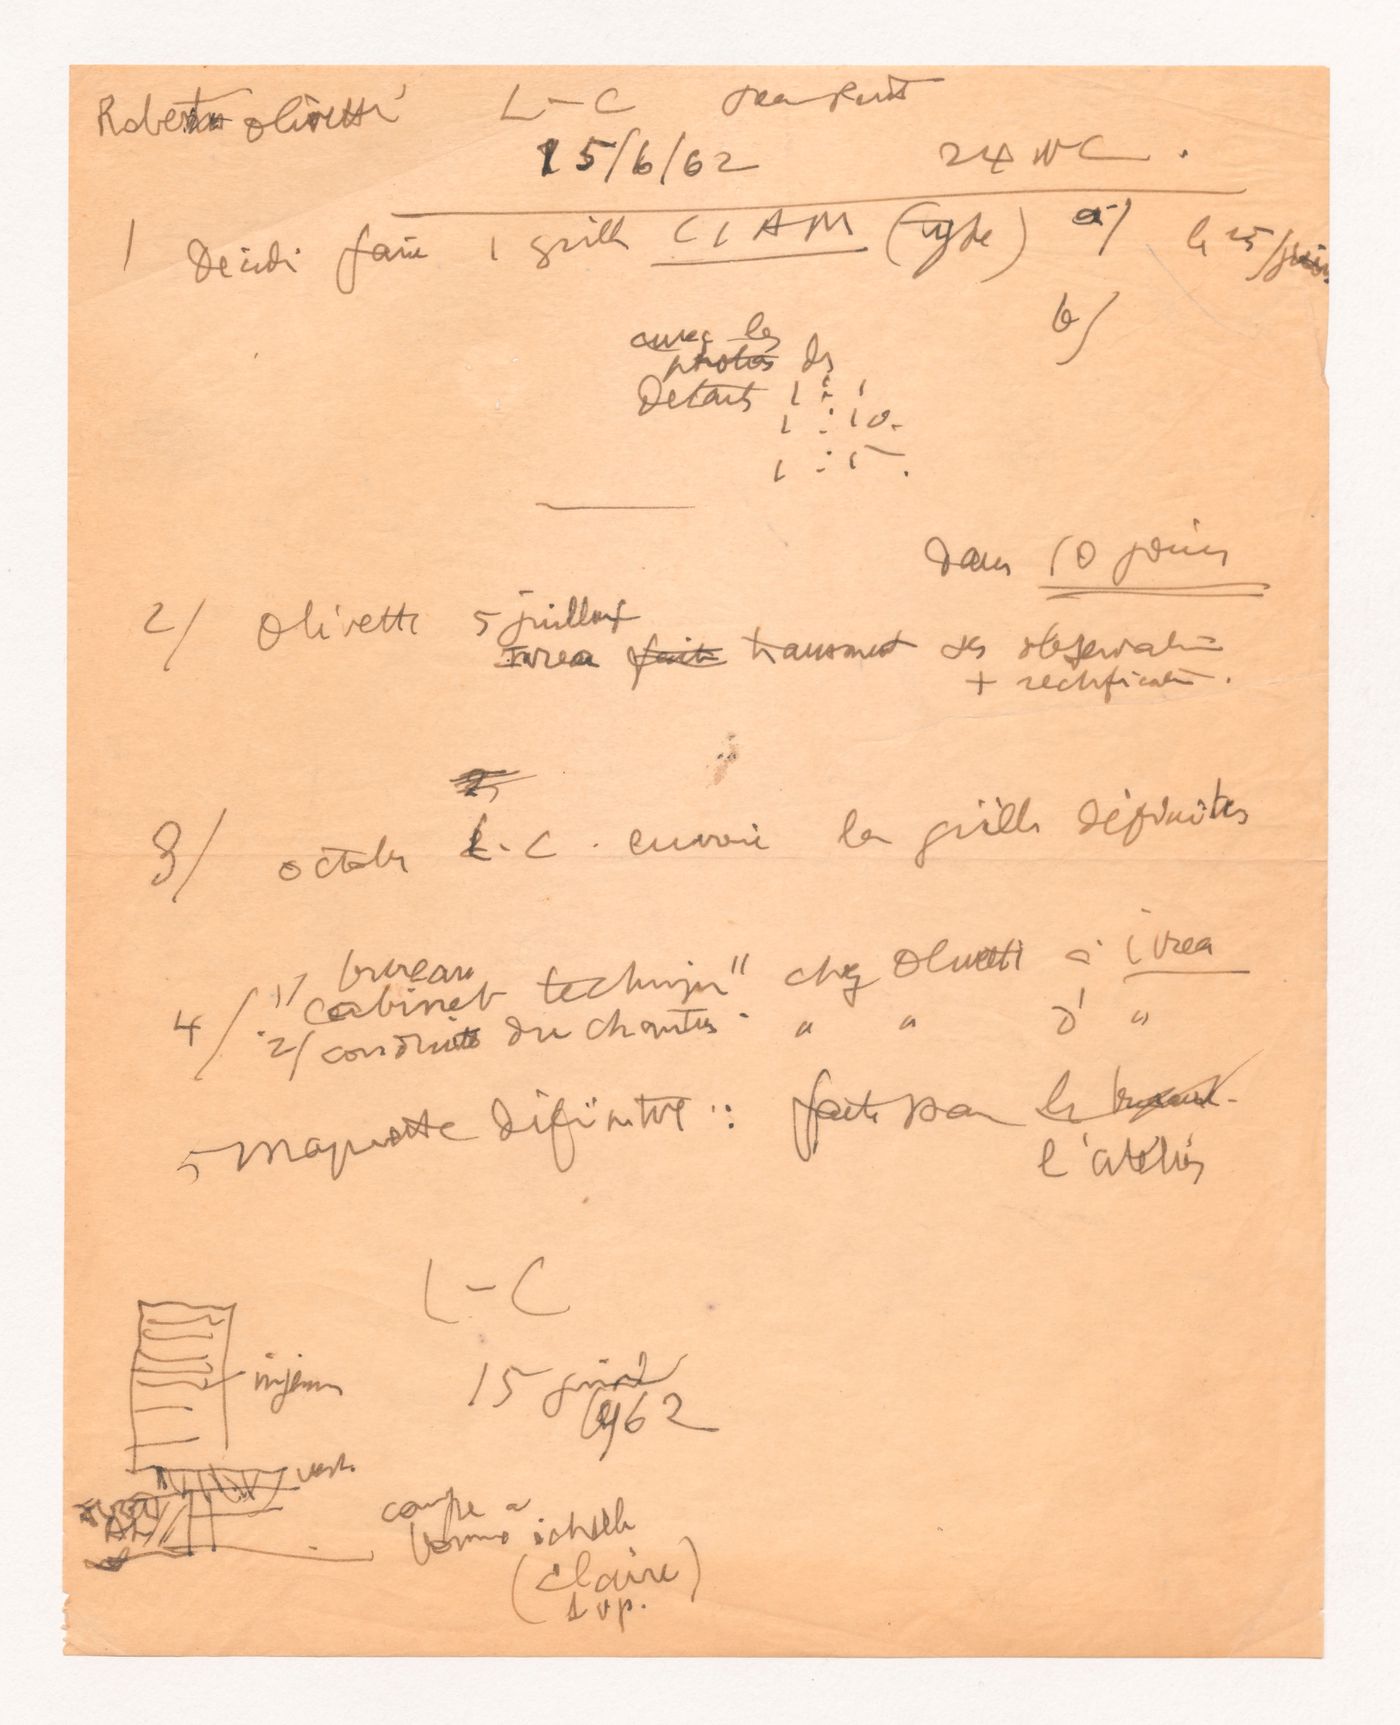 Roberto Olivetti L-C
15/6/62 24 NC.
1 Décidé faire 1 grille CIAM (type) a/ le 25/juin
b/
avec les
photos des
Détails 1:1
1:10.
1:5.
dans 10 jours
2/ Olivetti 5 juillet
Ivrea faite transmet ses observations
+ rectifications.
3/ octobre L-C. envoie les grilles définitives
4/ 1/ bureau
cabinet technique" chez Olivetti à ivrea
2/ conduite du chantier. " " à "
5 Maquette définitive: faite par le bureau
l'atelier
L-C
15 juin
1962
coupe à
bonne échelle
(claire)
svp.